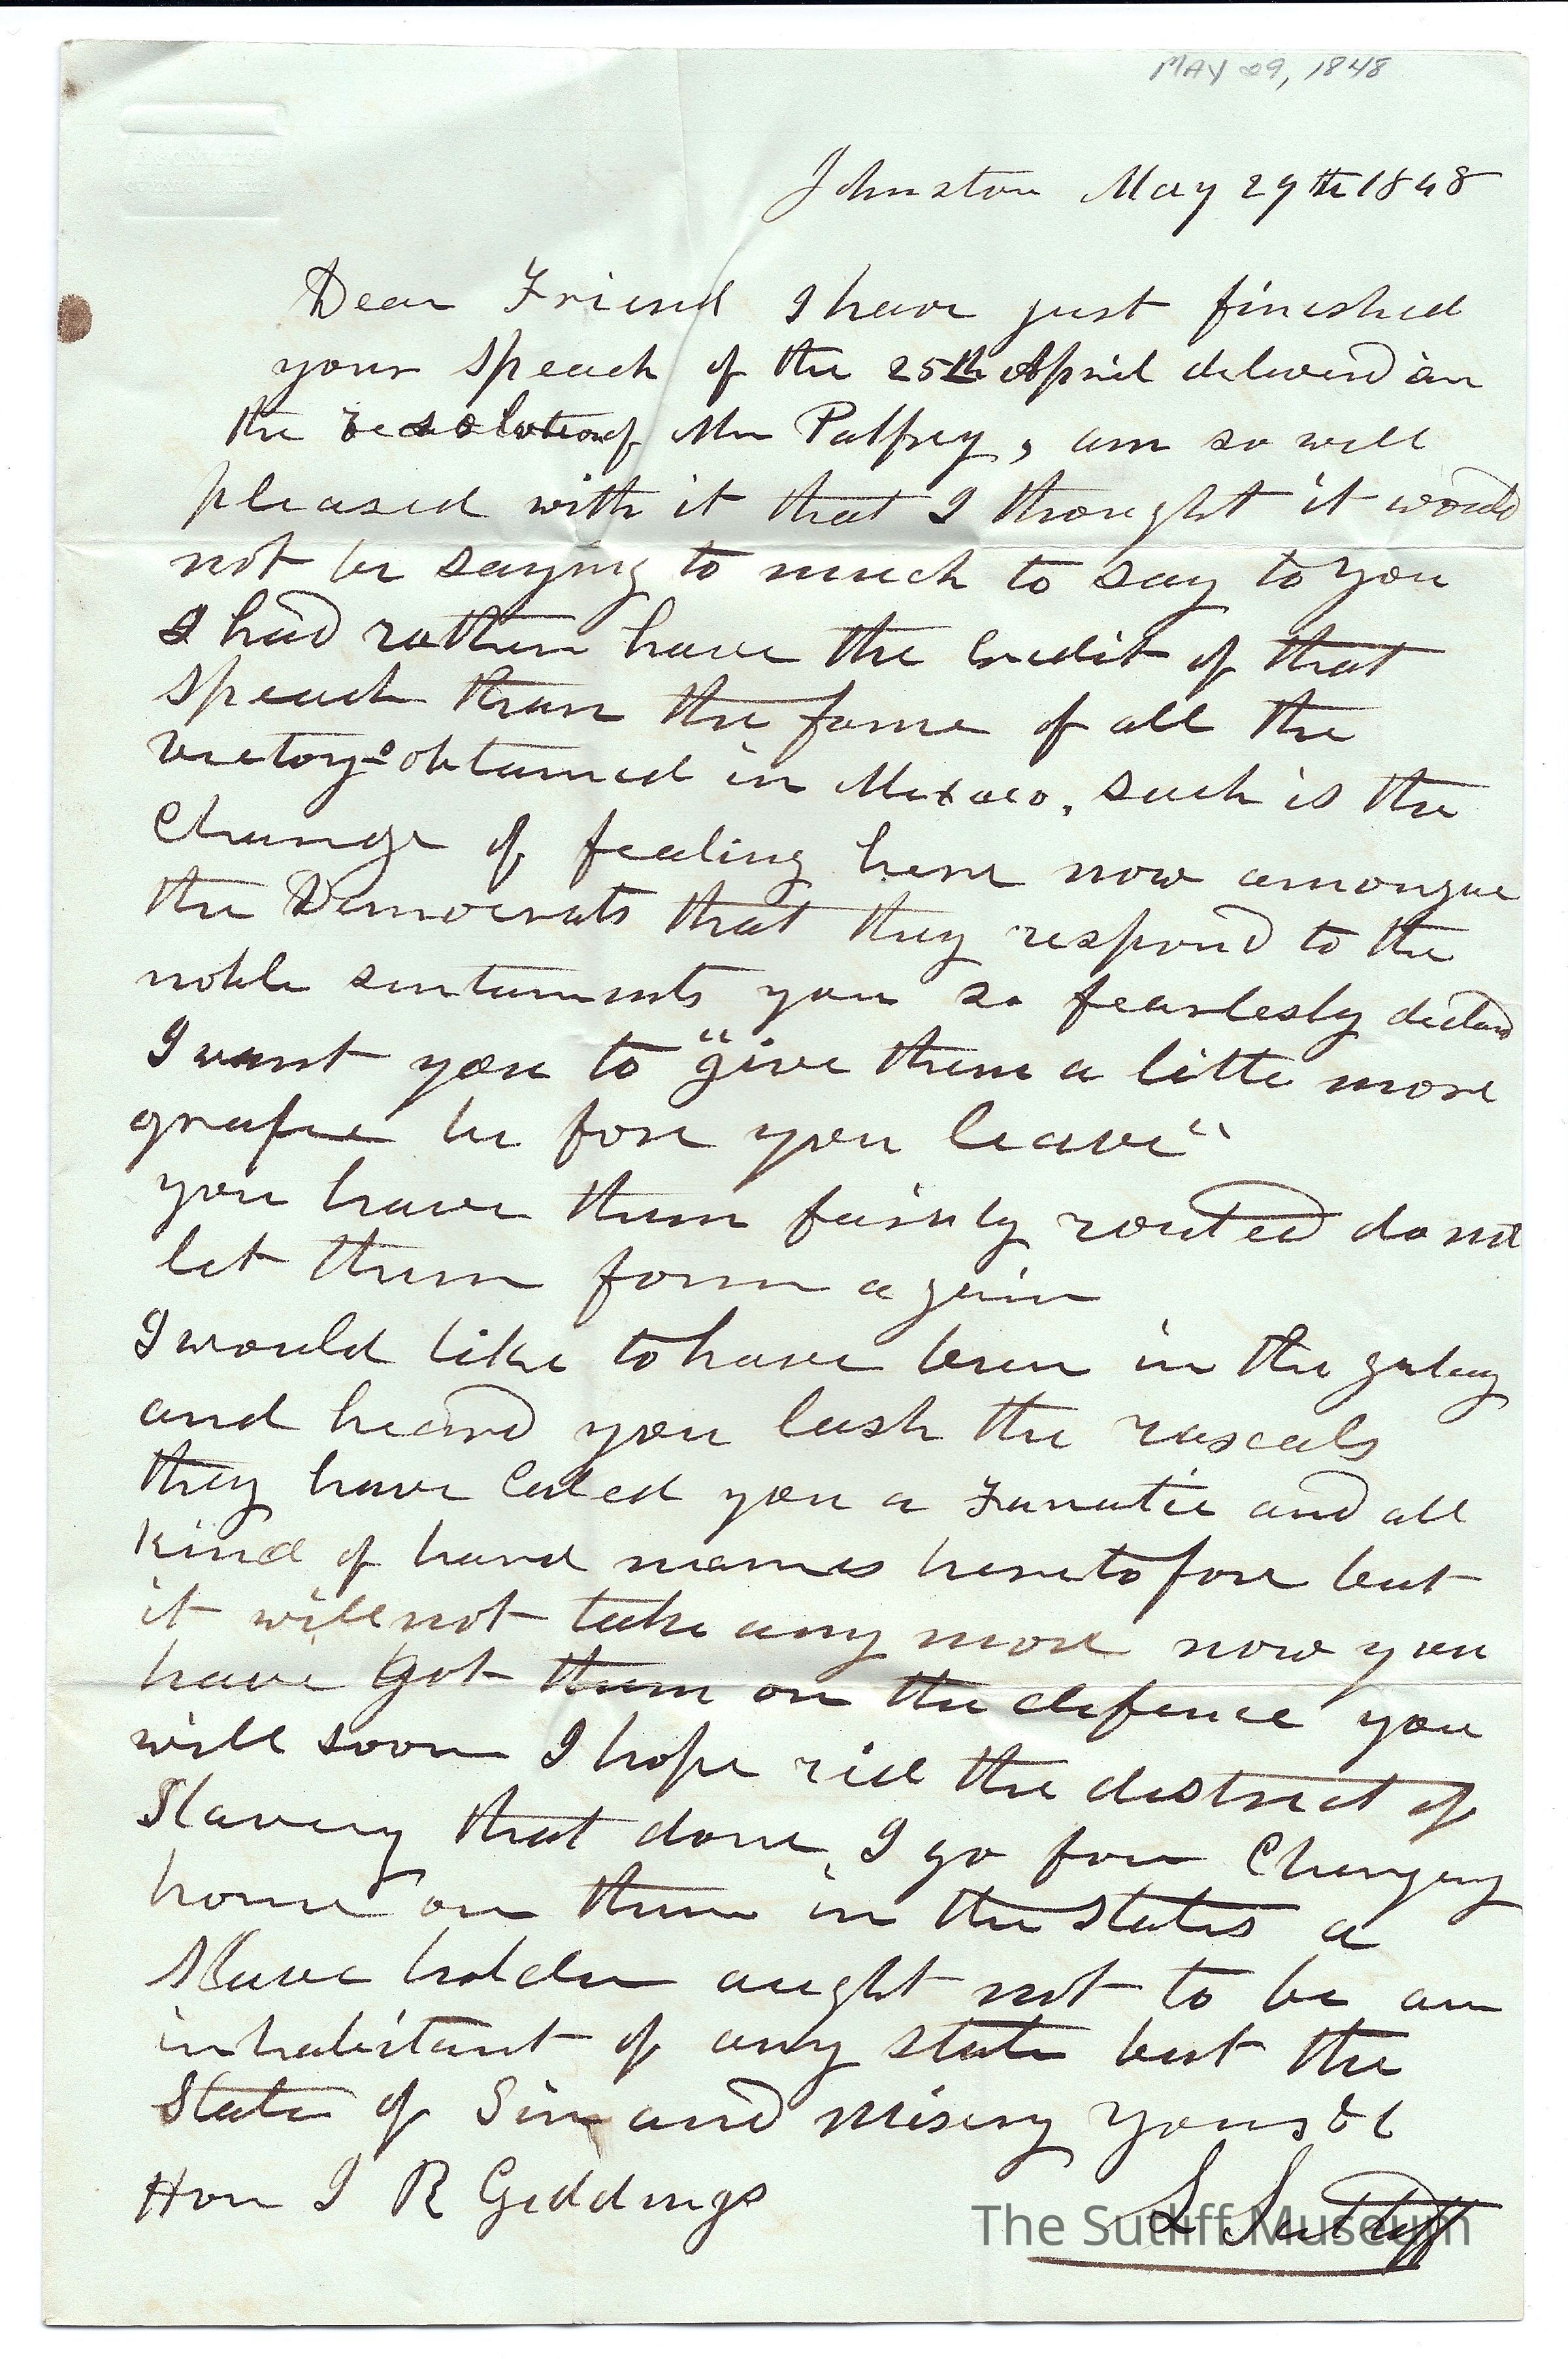 MAY 29, 1848
Johnston May 29th 1848
Dear Friend I have just finished
your speach of the 25th April deliverd on
the resolution of Mr Palfrey, am so well
pleased with it that I thought it would
not be saying to much to say to you
I had rather have the credit of that
speach than the fame of all the
victorys obtained in Mexaco, such is the
change of feeling here now amongue
the Democrats that they respond to the
noble sentiments you so fearlesly declard
I want you to "give them a little more
grape be fore you leave"
you have them fairly routed do not
let them form again
I would like to have been in the galey
and heard you lash the rascals
they have caled you a Fanatic and all
kind of hard names heretofore but
it will not take any more now you
have got them on the defence you
will soon I hope rid the district of
Slavery that done, I go for Charging
home on them in the states a
Slave holder aught not to be an
inhabitant of any state but the
State of Sin and Misery yours &c
Hon J R Giddings
L Sutliff
The Sutliff Museum